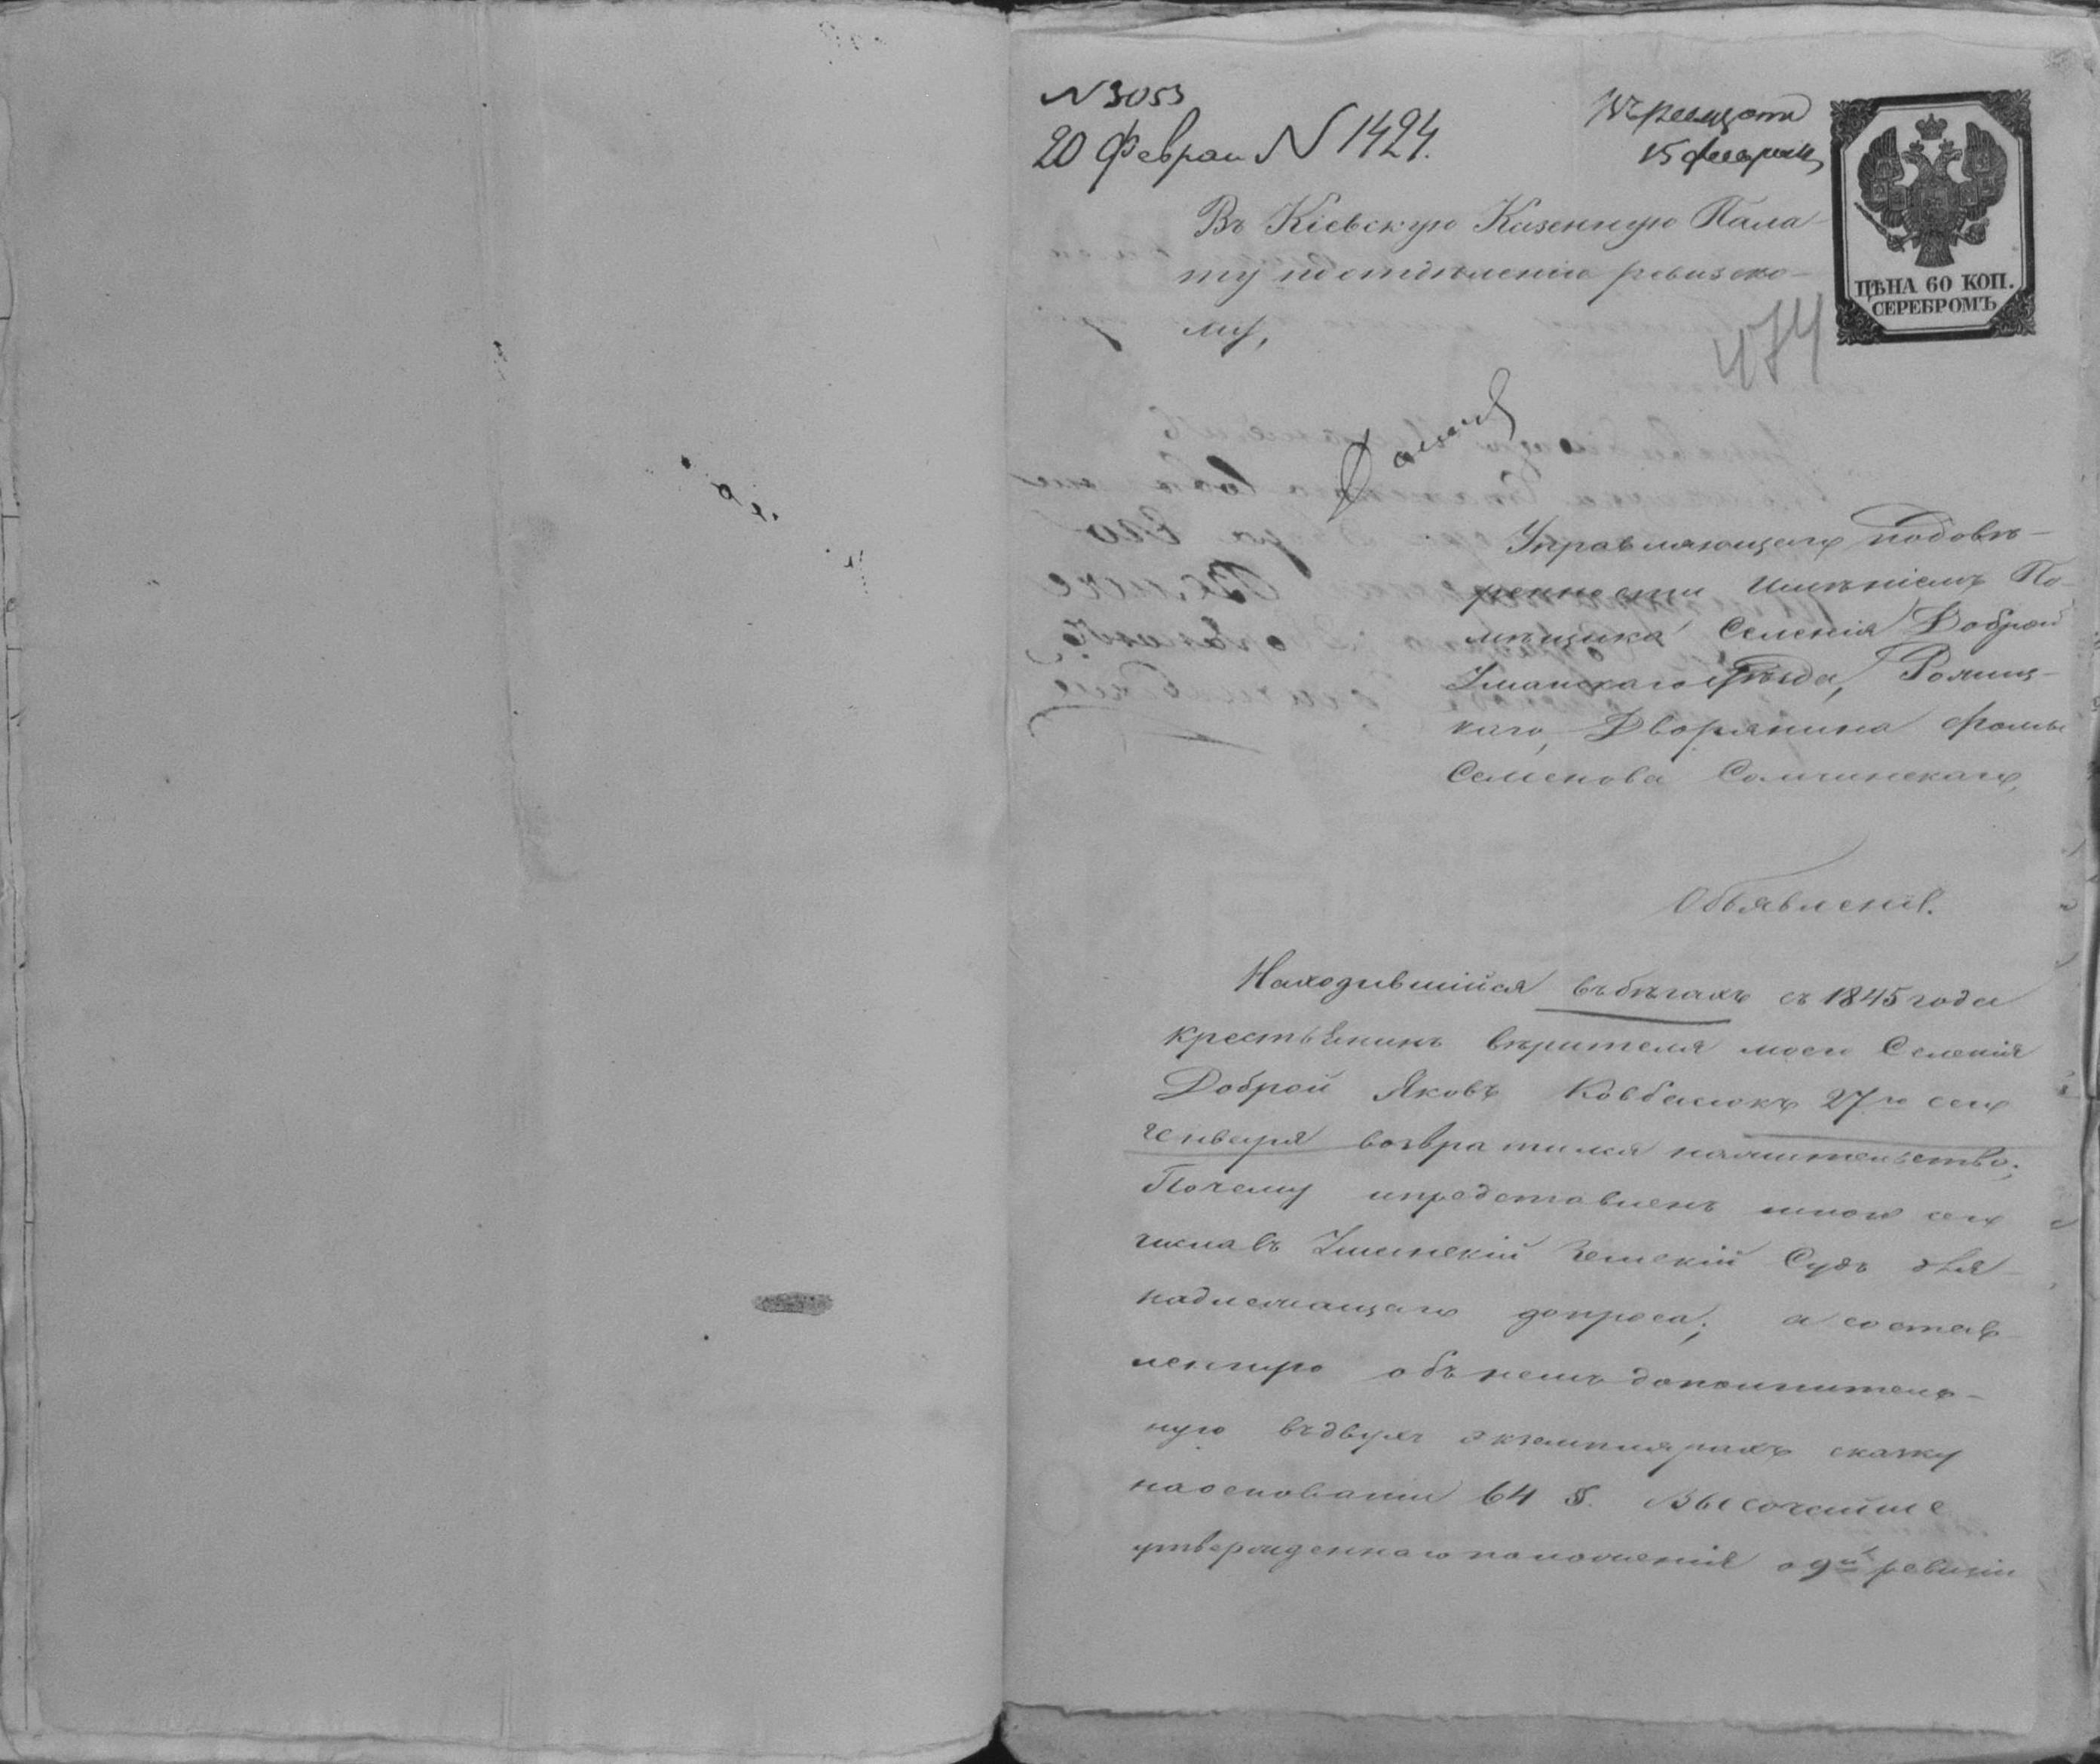 N 3053
20 Феврал N 1424.
15 февраля
ЦѢНА 60 КОП.
СЕРЕБРОМЪ
Въ Кіевскую Казенную Пала-
ту по отдѣленію ревизско-
му,
474
Управляющаго по довѣ-
ренности имѣніемъ По-
мѣщика Селенія Доброй
Уманскаго уѣзда,
каго, Дворянина Фомы
Семенова
Объявленіе.
Находившійся въ бѣгахъ съ 1845 года
крестьянинъ вѣрителя моего Селенія
Доброй Яковъ Ковбасюкъ 27го сего
генваря возвратился на жительство;
Почему и представленъ мною сего
числа въ Уманскій Земскій Судъ для
надлежащаго допроса; а состав-
ленную объ немъ дополнитель-
ную въ двухъ экземплярахъ сказку
на основаніи 64 §. Высочайше
утвержденнаго положенія о 9й ревизіи